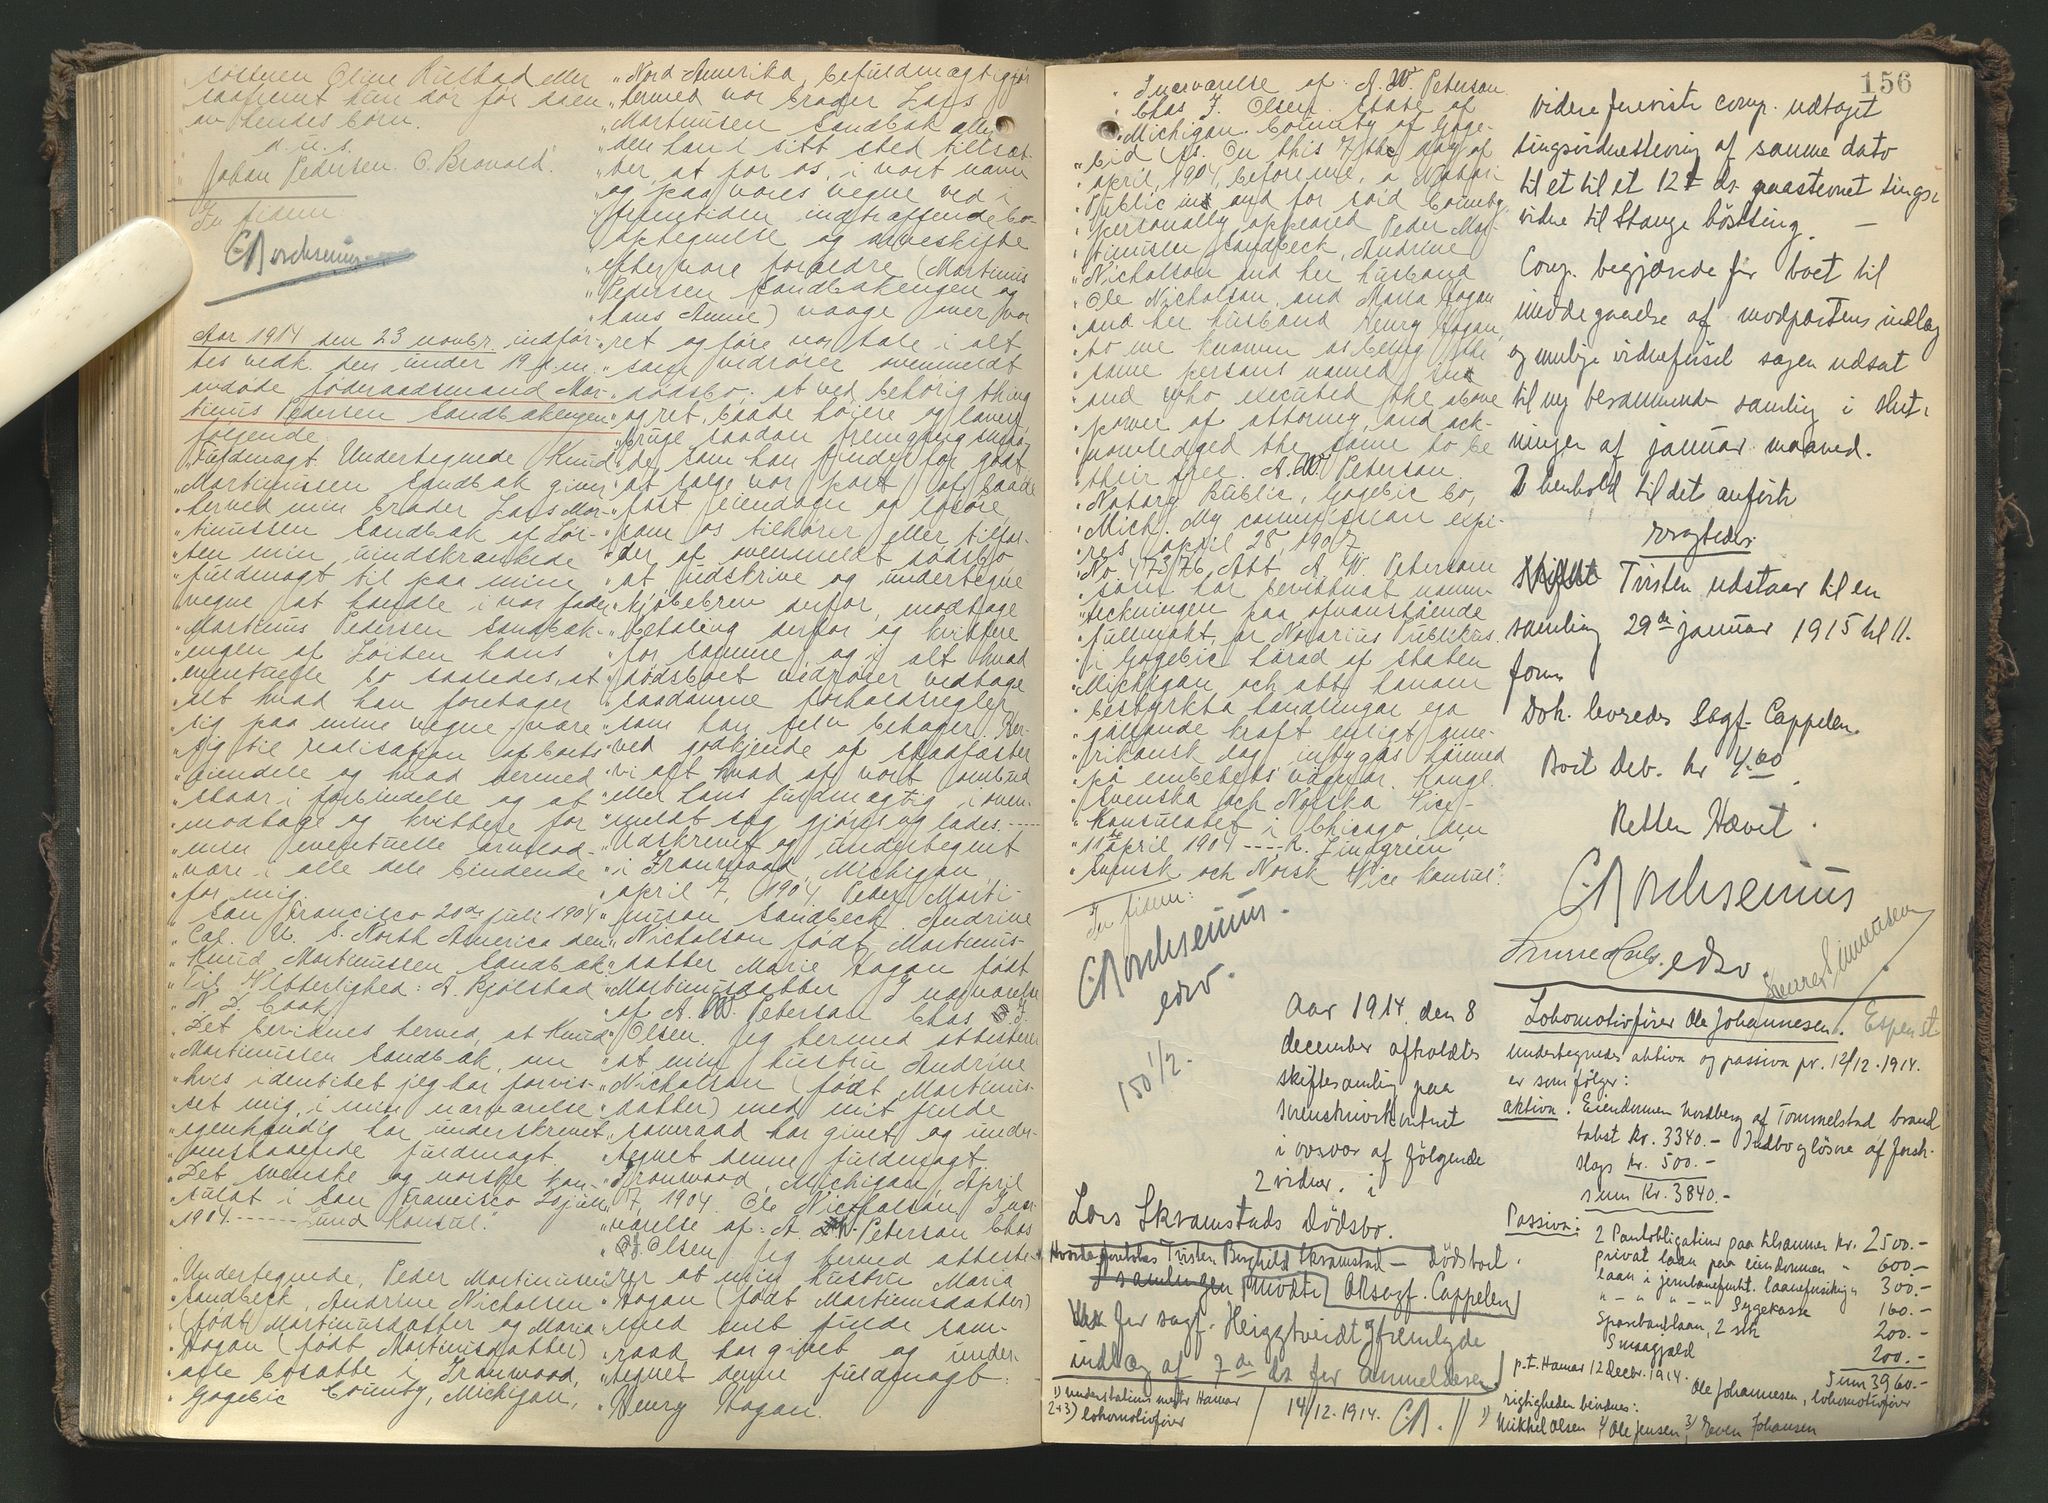 søsteren Oline Rustad eller
saafremt hun dør før daen
av hendes børn.
d.u.s.
Johan Pedersen. O. Brovold.
In fidem:
Aar 1914 den 23 novbr. indfør-
tes vedk. den under 19 f.m.
avdøde føderaadsmand Mar-
tinus Pedersen Sandbakengen
følgende
"Fuldmagt. Undertegnede Knud
"Martinussen Sandbak giver
"herved min broder Lars Mar-
"tinussen Sandbak af Løi-
"ten min uindskrænkede
"fuldmagt til paa mine
"vegne at handle i vor fader
"Martinus Pedersen Sandbak-
"engen af Løiten hans
"eventuelle bo saaledes, at
"alt hvad han foretager
"sig paa mine vegne være
"sig til realisation af boets
"eiendele og hvad dermed
"staar i forbindelse og at
"modtage og kvittere for
"min eventuelle arvelod
"være i alle dele bindende
"for mig.
"San Francisco 20de juli 1904
"Cal. U. S. North America den
"Knud Martinussen Sandbak.
"Til Vitterlighed: A. Kjølstad
"N. J. Cook
"Det bevidnes herved, at Knud
"Martinussen Sandbak, om
"hvis identitet jeg har forvis-
"set mig, i mit nærværelse
"egenhændig har underskrevet
"omstaaende fuldmagt.
"Det svenske og norske kon-
"sulat i San Francisco juli
"1904. ------ Lund Konsul".
"Undertegnede, Peder Martinusen
"Sandbeck, Andrine Nicholsen
"(født Martinusdatter og Maria
"Hogan (født Martinusdatter)
"alle bosatte i Ironwood,
"Gogebic County, Michigan,
"Nord-Amerika, befuldmægtigjør
"hermed vor broder Lars
"Martinusen Sandbak eller
"den han i sitt sted tiltræt-
"ter, at for os, i vort navn
"og paa vores vegne ved i
"fremtiden indtræffende bo-
"optegnelse og arveskifte
"efter vore forældre (Martinus
"Pedersen Sandbakengen og
"hans Anne) vaage over vor
"ret og føre vor tale i alt
"som vedrører ovenmeldt
"dødsbo: at ved behørig thing
"og ret, baade høiere og lavere,
"bruge saadan fremgang
"de som han finder for godt
"at sælge vor part af baade
"fast eiendom og løsøre,
"som os tilhører eller tilfal-
"der af ovenmeldt dødsbo
"at udskrive og undertegne
"kjøbebrev derfor, modtage
"betaling derfor og kvittere
"for samme og i alt hvad
"dødsboet vedrører vedtage
"saadanne forholdsregler
"som han selv behager. Her-
"ved godkjende og stadfæster
"vi alt hvad af vort ombud
"eller hans fuldmægtig i oven-
"meldt sag gjøres og lades.----
"Udskrevet og undertegnet
"i Ironwood, Michigan,
"april 7, 1904. Peder Marti-
"nusen Sandbeck. Andrine
"Nicholson født Martinus-
"datter Marie Hogan født
"Martinusdatter I nærværelse
"af A. W. Peterson Chas. J.
"Olsen. Jeg hermed attesterer
"at min hustru Andrine
"Nicholson (født Martinus-
"datter) med mit fulde
"samraad har givet og under-
"tegnet denne fuldmagt.
"Ironwood, Michigan, April
"7, 1904. Ole Nicholson, I nær-
"værelse af: A. W. Peterson Chas
"J. Olsen. Jeg hermed atteste-
"rer at min hustru Maria
"Hogan (født Martinusdatter)
"med mit fulde sam-
"raad har givet og under-
"tegnet denne fuldmagt.
"Henry Hogan.
156
"I nærværelse af: A. W. Peterson
"Chas J. Olsen. State of
"Michigan. County of Goge-
"bic (ss. On this 7the day of
"april, 1904, before me, a Notari
"Public in and for said County
"personally appeared Peder Mar-
"tinusen Sandbeck, Andrine
"Nicholson and her husband
"Ole Nicholson, and Maria Hogan
"and her husband Henry Hogan,
"to me known as being the
"same persons named in
"and who executed the above
"power of attorney, and ack-
"nowledged the same to be
"their free. A. W. Peterson
"Notary Public, Gogebic Co,
"Mich. My commission expi-
"res april 28, 1907
"No 47376. Att A W Peterson
"som har bevittnat namn-
"teckningen paa ofvanstående
"fullmakt, är Notarius Publikus
"i Gogebic härad af staten
"Michigan och att honom
"bestyrkta handlingar ega
"gällande kraft enligt ame-
"rikansk lag, intygas härmed
"på embetets vägnar. Kongl.
"Svenska och Norska Vice-
"Konsulatet i Chicago, den
"11te april 1904 ---- R. Lindgreen
"Svensk och Norsk Vice konsul".
In fidem:
edsv.
150 1/2.
Aar 1914 den 8
december afholdtes
skiftesamling paa
sorenskriverkontoret
i overvær af følgende
2 vidner. i
Lars Skramstads Dødsbo.
Hvorda foretokes Tvisten Berghild Skramstad – Dødsboet.
I samlingen mødte ORsagf. Cappelen
for sagf. Heiggtveidt og fremlagde
indlæg af 7de ds for anmeldelsen
videre fremviste comp. udtaget
tingsvidnestevning af samme dato
til et til et 12te ds. paastevnet tings-
vidne til Stange høstting. –
Comp. begjærede for boet til
imødegaaelse af modpartens indlæg
og mulige vidneførsel sagen udsat
til ny berammende samling i slut-
ningen af januar maaned.
I henhold til det anførte
vragtedes:
Tvisten udstaar til en
samling 29de januar 1915 kl 11.
form
Dok. leveredes Sagf. Cappelen.
Boet Deb. kr 4.00
Retten Hævet.
edsv.
Lokomotivfører Ole Johannesen. Espenst.
Undertegnedes aktiva og passiva pr. 12/12.1914.
er som følger:
Aktiva. Eiendommen Nordberg af Tommelstad brand
takst kr. 3340.– Indbo og løsøre af forsk.
slags kr. 500.–
sum kr. 3840.–
Passiva: 2 Pantobligationer paa tilsammen kr. 2500.–
privat laan paa eiendommen " 600.–
laan i jernbanefunkt. laanefor " 300.–
" – " – " – " Sygekasse 160.–
Sparebanklaan, 2 stk 200.–
Smaagjæld 200.–
Sum 3960.–
p.t. Hamar 12 Decbr. 1914.
Ole Johannesen, lokomotivfører
rigtigheden bevidnes:
1) Mikkel Olsen 2) Ole Jensen, 3) Even Johansen
1) understationsmester Hamar
2+3) lokomotivfører
14/12.1914.